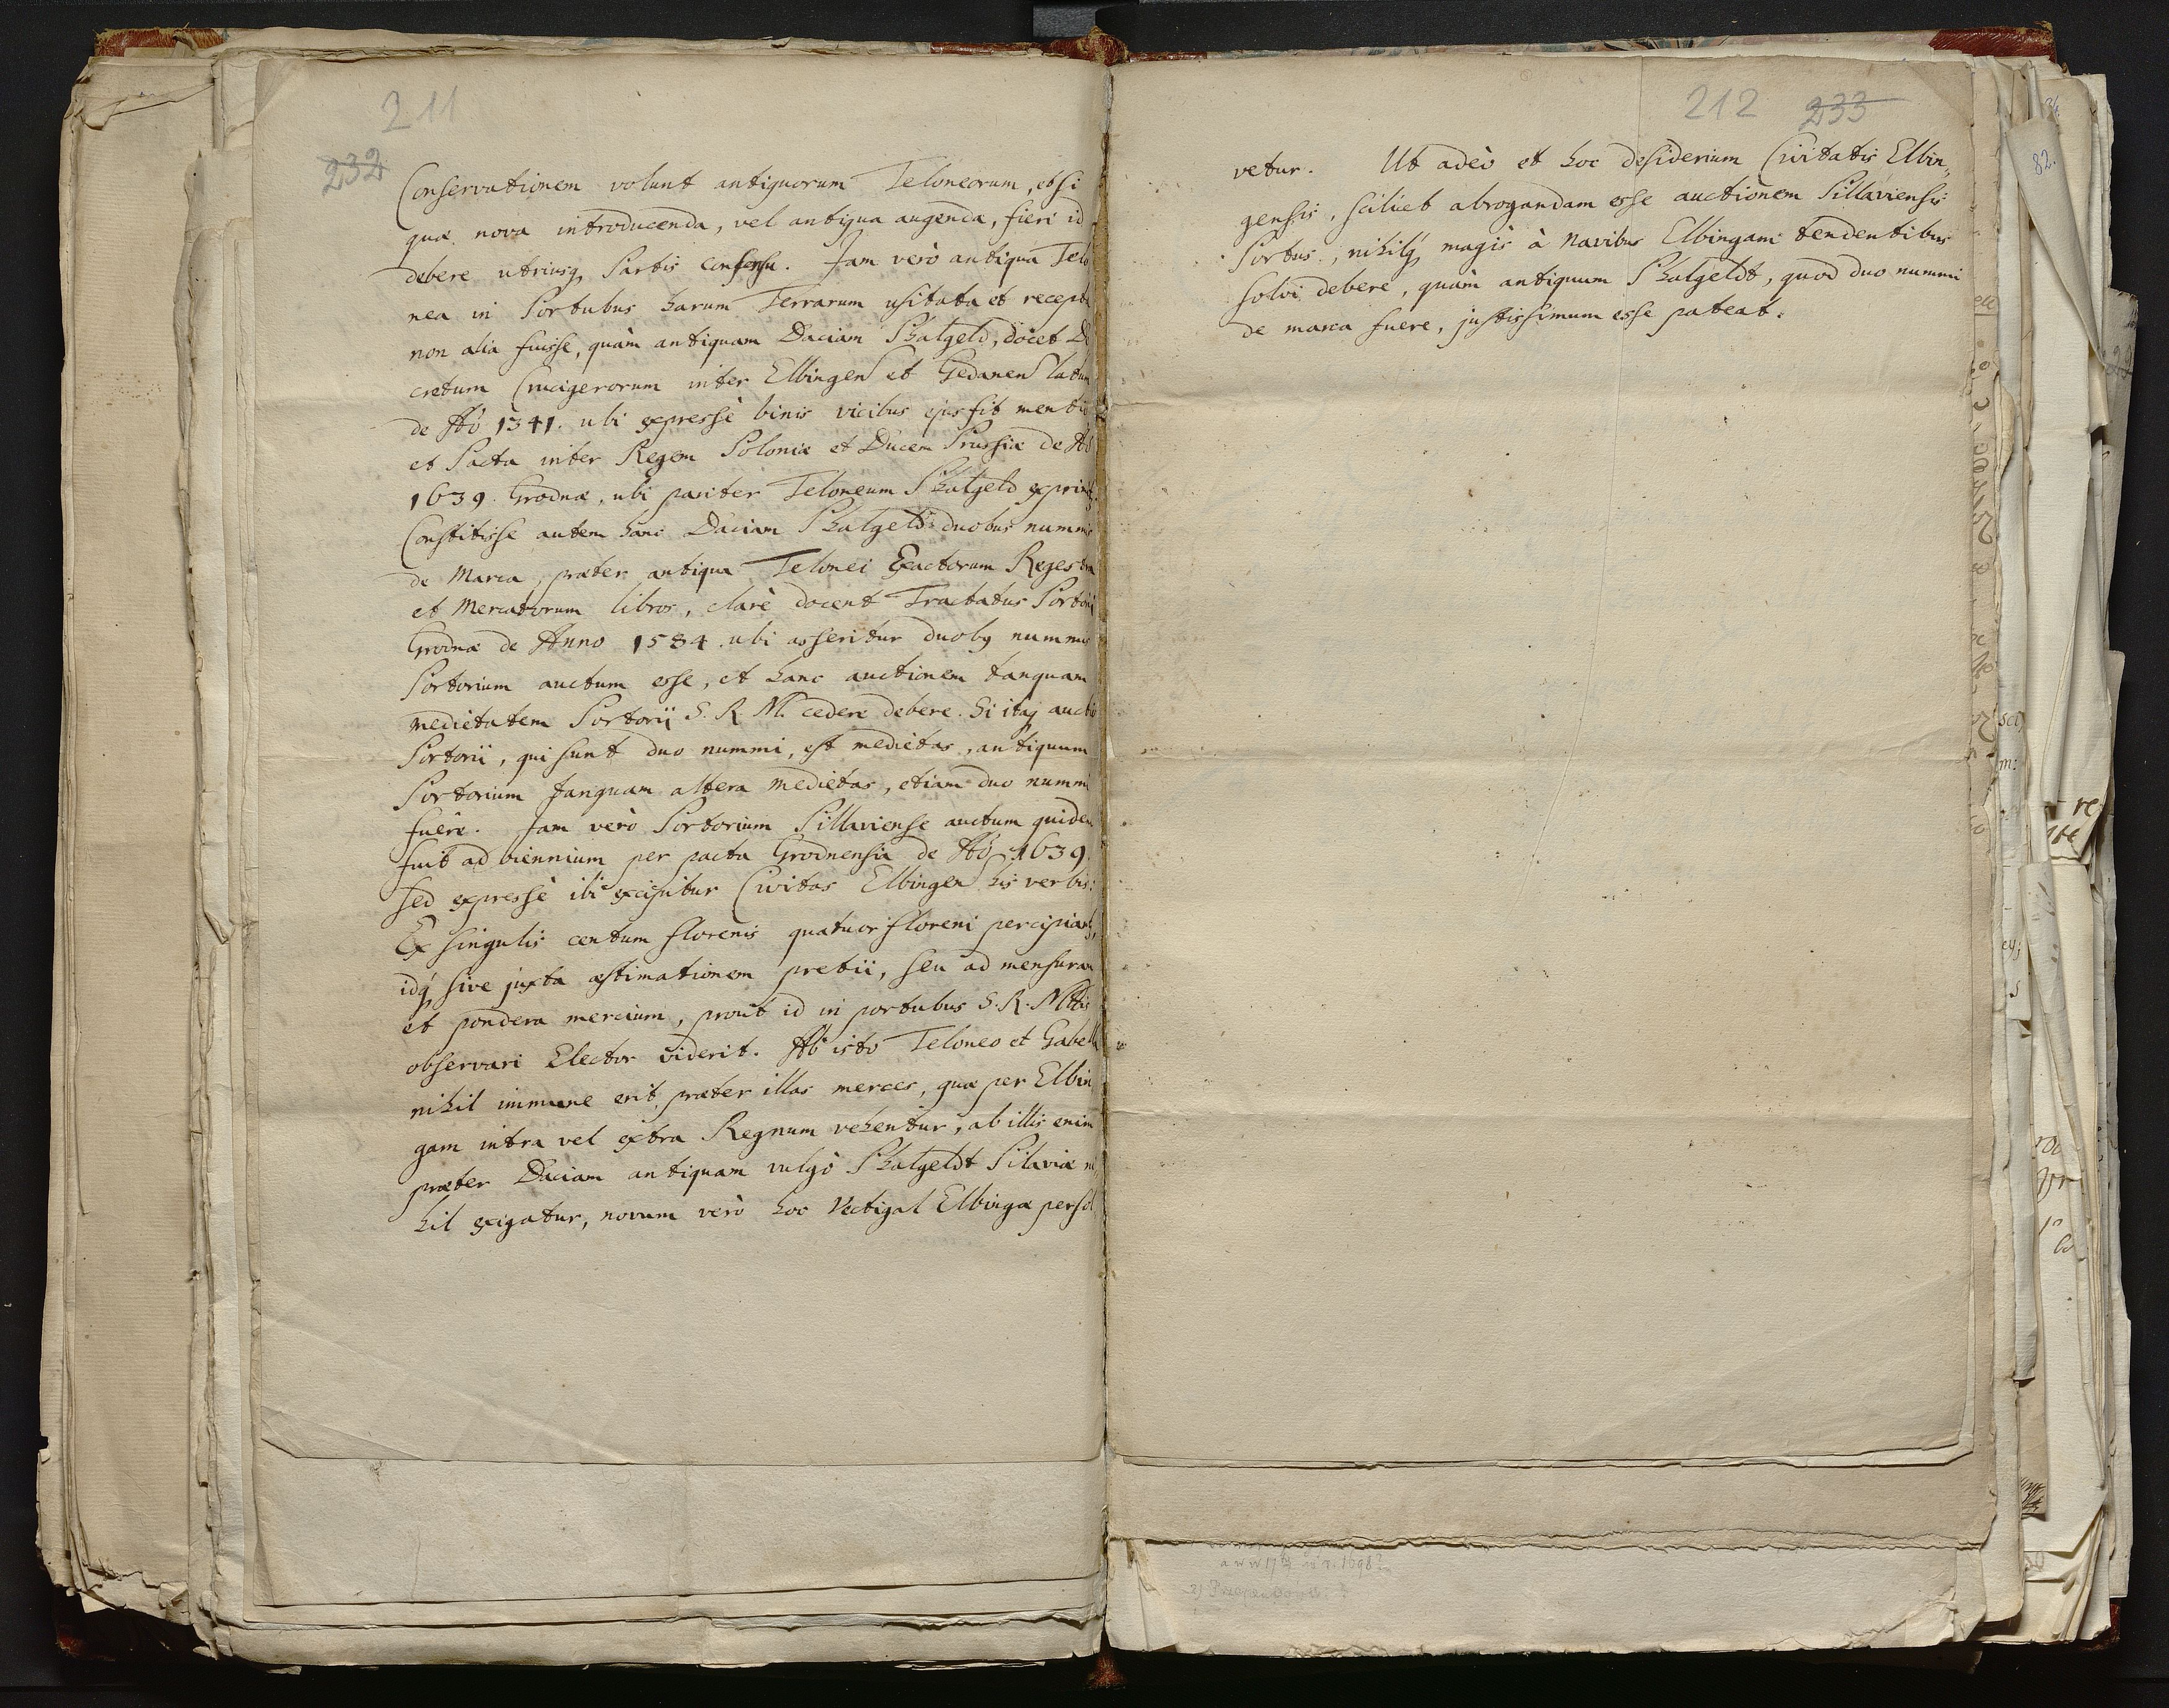 211
232
Conservationem volunt antiquorum Teloneorum, et si
quæ nova introducenda, vel antiqua augenda, fieri id
debere utriusq Partis consensu. Jam verò antiqua Telo
nea in Portubus harum Terrarum usitata et recepta
non alia fuisse, quàm antiquam Daciam Phalgeld, docet De
cretum Crucigerorum inter Elbingen et Gedanen latum
de Aõ 1341. ubi expressè binis vicibus ejus fit mentio
et Pacta inter Regem Poloniæ et Ducem Prussiæ de Aõ
1639. Grodnæ, ubi pariter Teloneum Phalgeld exprimit
Constitisse autem hanc Daciam Phalgeld duobus nummis
de Marca, præter antiqua Telonei Exactorum Regestra
et Mercatorum libros, clarè docent Tractatus Portorii
Grodnæ de Anno 1584. ubi asseritur duobq nummis
Portorium auctum esse, et hanc auctionem tanquam
medietatem Portorii S. R. M. cedere debere. Si itaq auctio
Portorii, qui sunt duo nummi, est medietas, antiquum
Portorium tanquam altera medietas, etiam duo nummi
fuêre. Jam verò Portorium Pillaviense auctum quidem
fuit ad biennium per pacta Grodnensia de Aõ 1639.
sed expressè ibi excipitur Civitas Elbingen his verbis:
Ex singulis centum florenis quatuor floreni percipiant,
idq sive juxta æstimationem pretii, seu ad mensuram
et pondera mercium, prout id in portubus S. R. Mttis
observari Elector viderit. Ab isto Teloneo et Gabella
nihil immune erit, præter illas merces, quæ per Elbin
gam intra vel extra Regnum vehentur, ab illis enim
præter Daciam antiquam vulgò Phalgeldt Pilaviæ ni
hil exigatur, novum verò hoc Vectigal Elbingæ persol
212 233
vetur. Ut adeò et hoc desiderium Civitatis Elbin„
gensis, scilicet abrogandam esse auctionem Pillaviensis
Portus, nihilq magis à Navibus Elbingam tendentibus
solvi debere, quàm antiquum Phalgeldt, quod duo nummi
de marca fuere, justissimum esse pateat.
82.